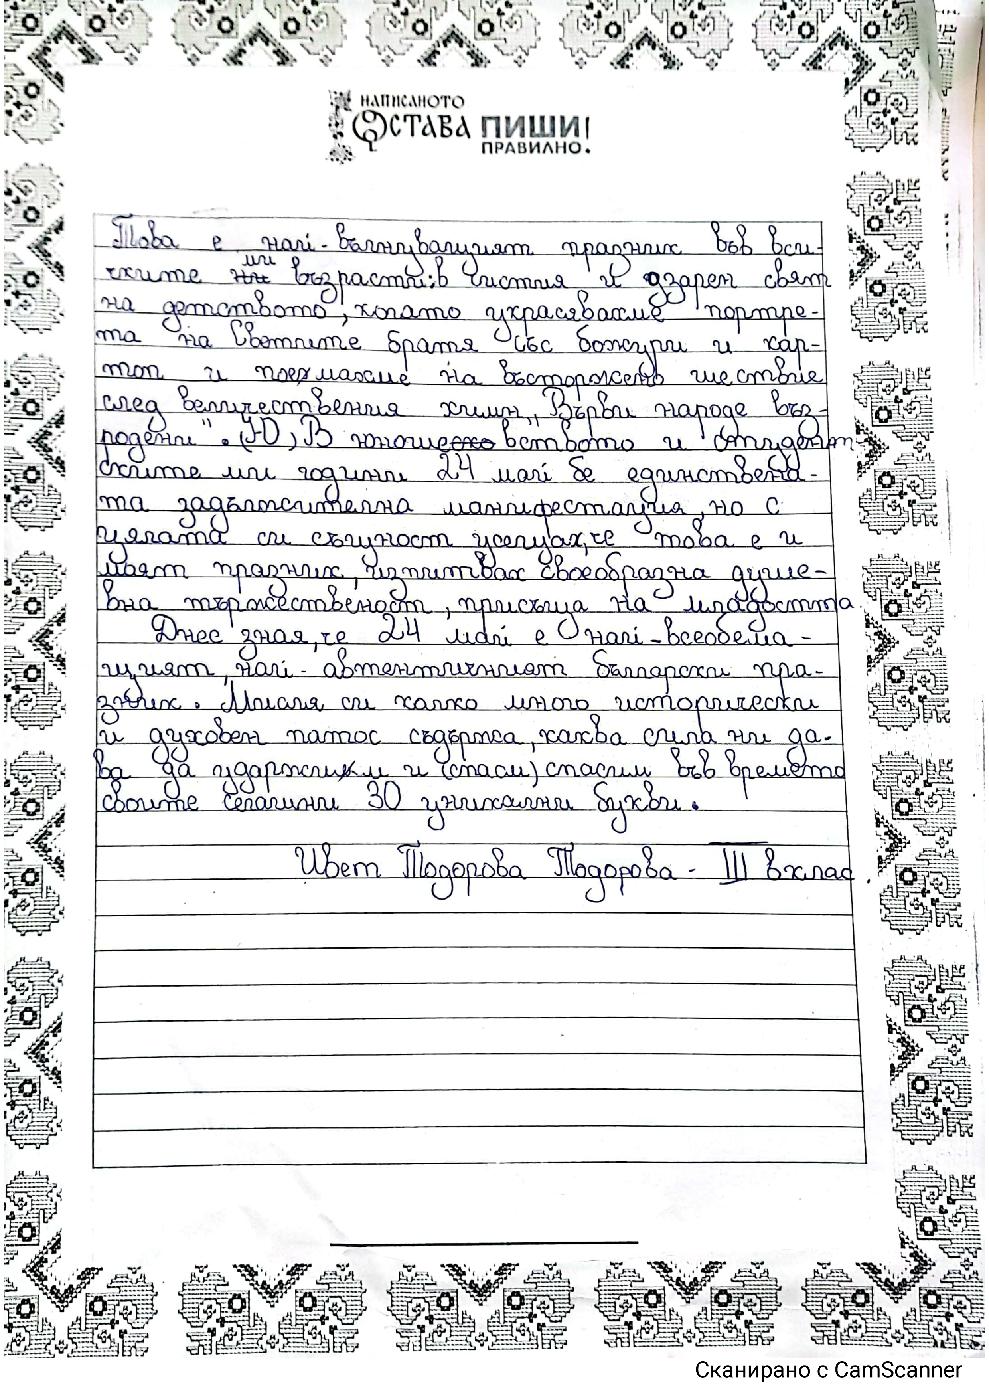 НАПИСАНОТО
ОСТАВА ПИШИ!
ПРАВИЛНО.
Това е най-вълнуващият празник във вси-
чките ми възрасти: в чистия и озарен свят
на детството, когато украсявахме портре-
та на Светите братя със божури и кар-
тон и поемахме на възторжено шествие
след величествения химн „Върви народе въз-
родени". (Ю) В юношеството и студент-
ските ми години 24 май бе единствена-
та задължителна манифестация, но с
цялата си същност усещах, че това е и
моят празник, изпитвах своеобразна душе-
вна тържественост, присъща на младостта
Днес зная, че 24 май е най-всеобема-
щият, най-автентичният български пра-
зник. Мисля си колко много исторически
и духовен патос съдържа, каква сила ни да-
ва да удържим и (спаси) спасим във времето
своите сегашни 30 уникални букви.
Цвет Тодорова Тодорова - III в клас.
Сканирано с CamScanner